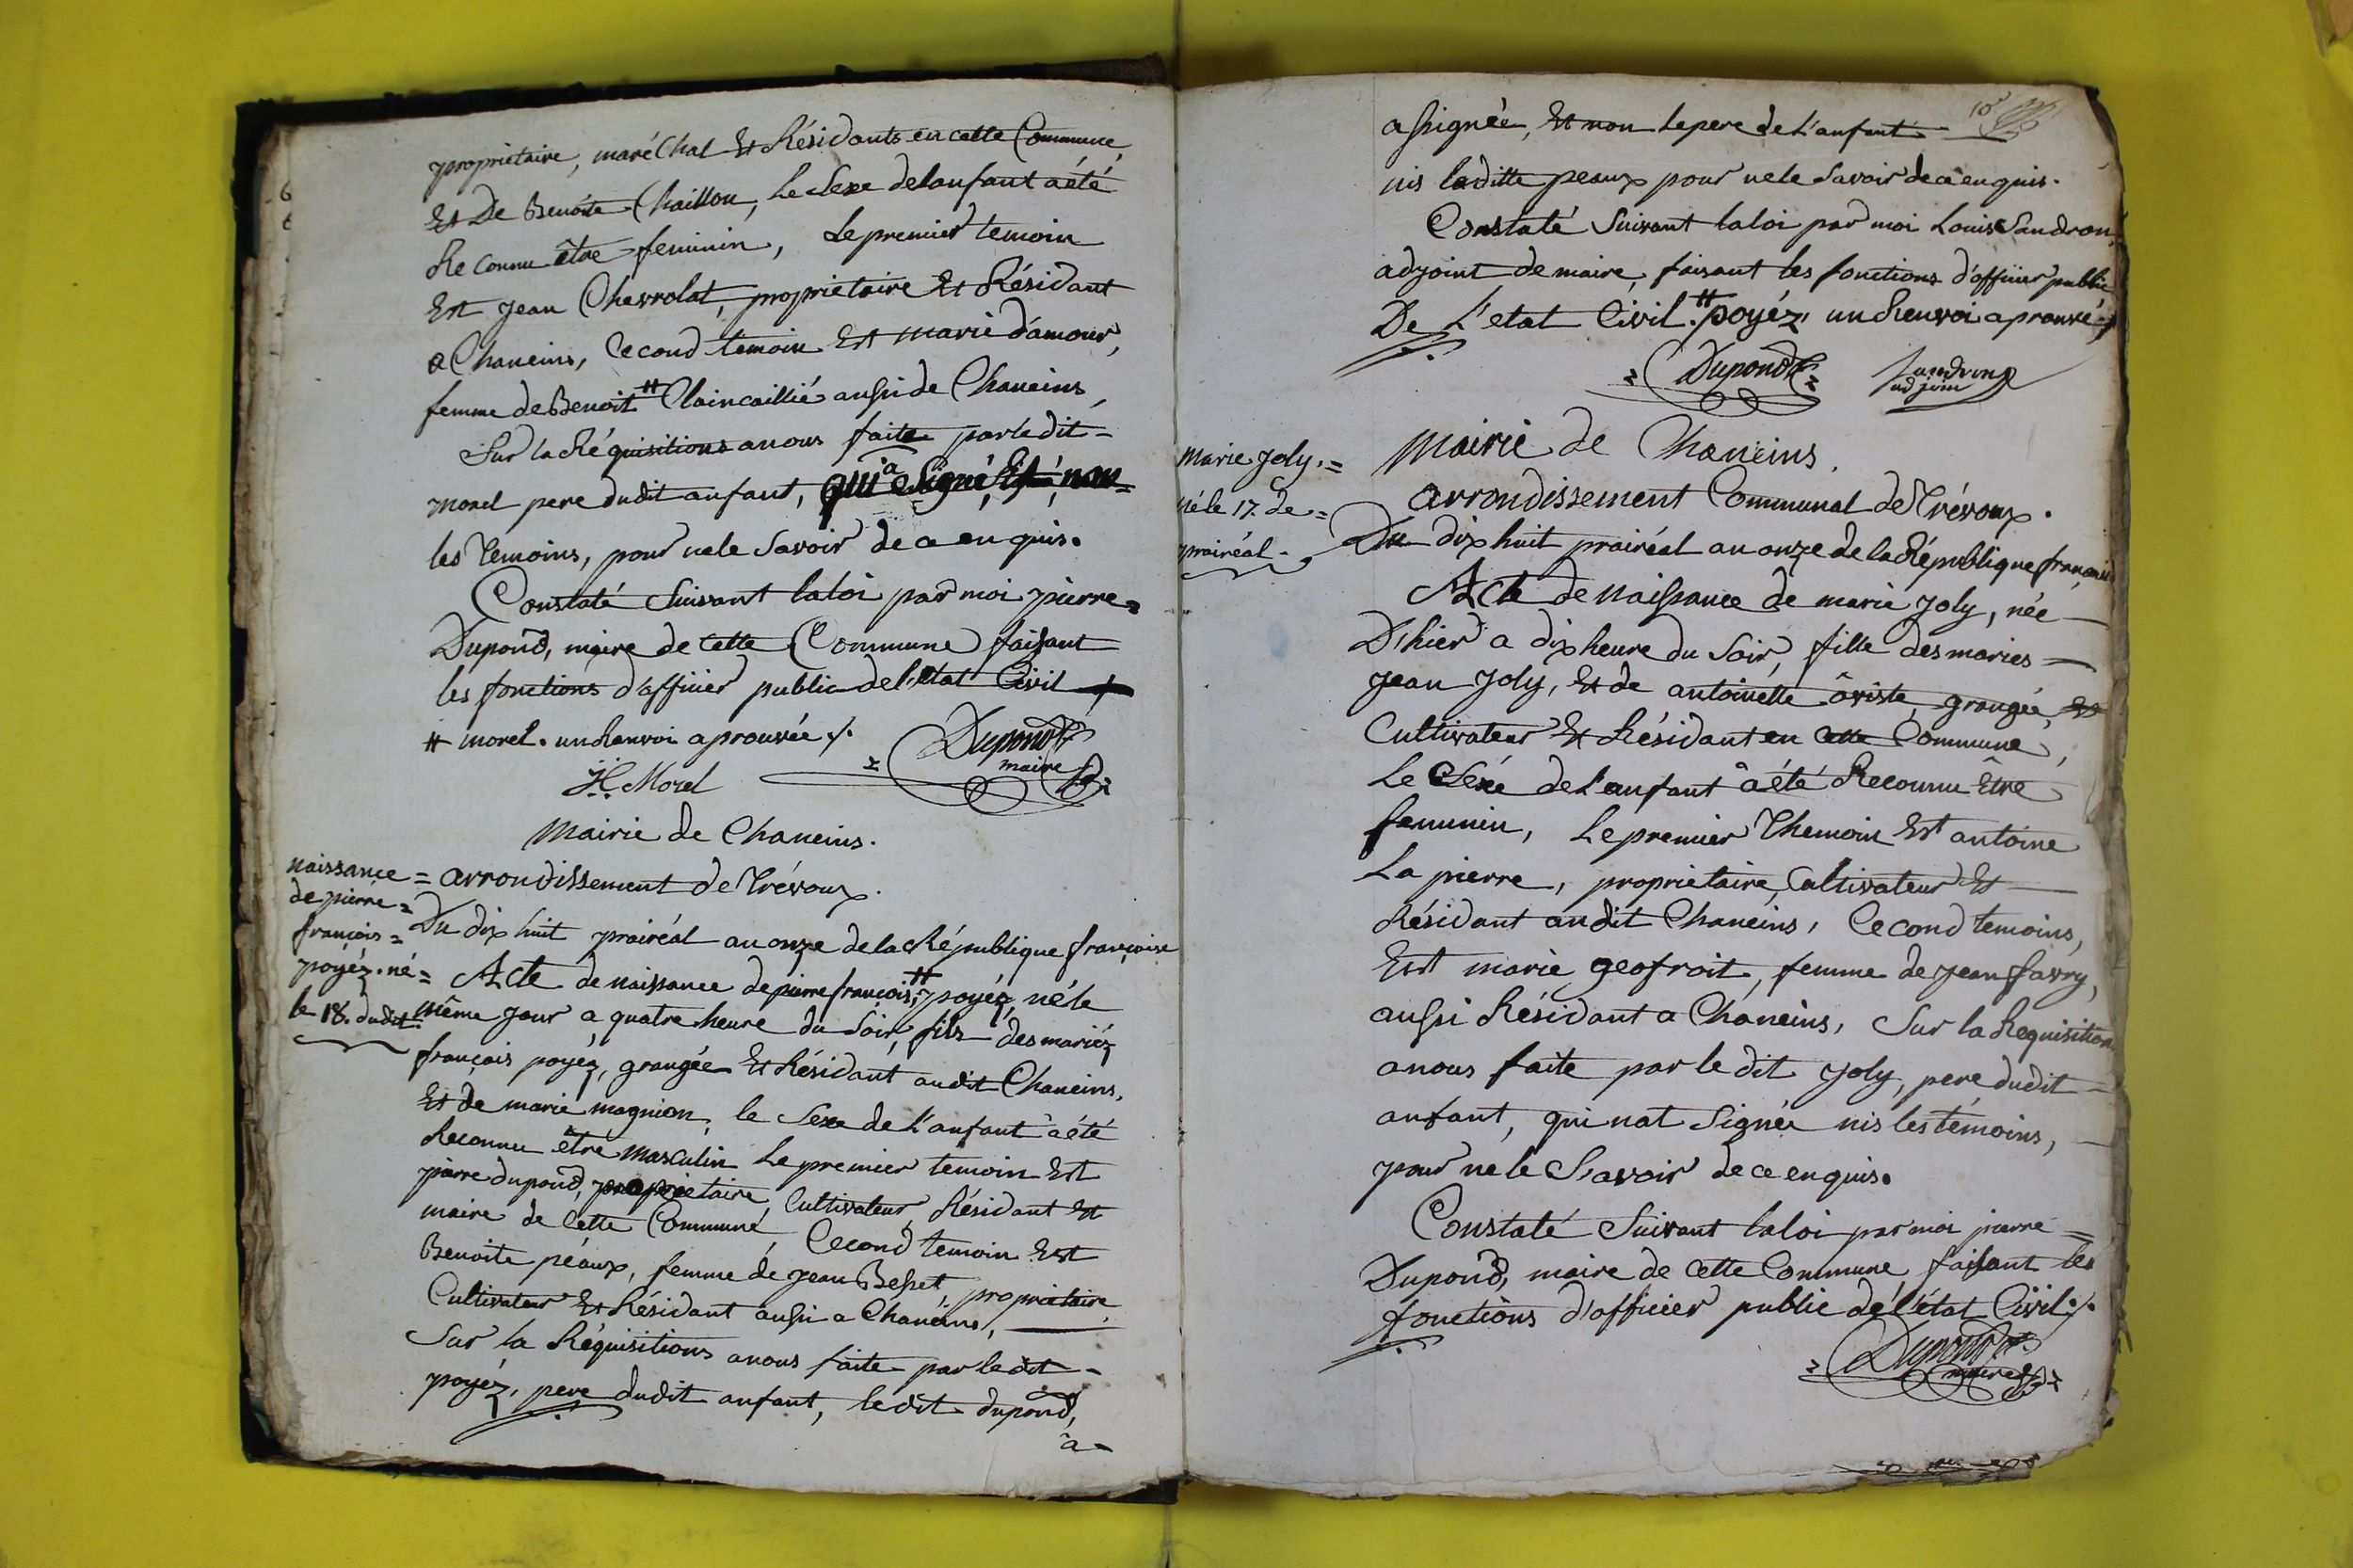 propriétaire, maréChal Et Résidants en cette Commune,
Et De Benoite Chaillon, Le Sexe de lanfant a été
Reconnu être feminin, Le premier temoin
Est jean Chevrolat, propriétaire Et Résidant
a Chaneins, Cecond temoin Est marie d'amour,
femme de Benoit # Claincaillié aussi de Chaneins,
Sur la Réquisitions a nous faite par ledit =
morel pere dudit anfant, qui a Signé, Est, non =
les Temoins, pour ne le Savoir de ce enquis.
Constaté Suivant la loi par moi pierre =
Dupond, maire de cette Commune faisant
les fonctions d'officier public de l'état Civil
# morel. un Ranvoi aprouvée ./.
Dupond
maire
H. Morel
Mairie de Chaneins.
arrondissement de Trévoux.
naissance =
de pierre =
françois =
poyéz. né =
le 18. dudit.
Du dix huit prairéal an onze de la République françoise
Acte de naissance de pierre françois, # poyéz, né le
même jour a quatre heure du Soir, fils des mariéz
françois poyéz, grangée Et Résidant audit Chaneins,
Et de marie magnion, le Sexe de L'anfant a été
Reconnu être masculin Le premier temoin Est
pierre dupond, propriétaire, Cultivateur, Résidant Et
maire de Cette Commune, Cecond temoin Est
Benoite péaux, femme de jean Besset, propriétaire,
Cultivateur Et Résidant aussi a Chaneins,
Sur la Réquisitions a nous faite par ledit =
poyéz, pere dudit anfant, ledit dupond,
a =
10
a ssignée, Et non le pere de L'anfant =
nis laditte peaux pour ne le Savoir de ce enquis.
Constaté Suivant la loi par moi Louis Sandron,
adjoint de maire, faisant les fonctions d'officier public
De L'etat Civil. # poyéz, un Renvoi aprouvé
Dupond
Sandron
adjoin
Marie Joly. =
né le 17. de =
prairéal.
Mairie de Chaneins.
arrondissement Communal de Trévoux.
Du dix huit prairéal an onze de la République françoise
Acte de naissance de marie Joly, née
D'hier a dix heure du Soir, fille des maries =
jean Joly, Et de antoinette oviste, grangée, Et
Cultivateur Et Résidant en Cette Commune,
Le Sexe de L'anfant a été Reconnu Etre
femunin, Le premier Themoin Est antoine
La pierre, propriétaire, Cultivateur Et
Résidant audit Chaneins, Cecond temoins,
Est marie geofroit, femme de jean favry,
aussi Résidant a Chaneins, Sur la Requisition
a nous faite par le dit Joly, pere dudit =
anfant, qui nat Signée nis les témoins,
pour ne le Savoir de ce enquis.
Constaté Suivant la loi par moi pierre =
Dupond, maire de cette Commune faisant les
fonctions d'officier public de l'état Civil ./.
Dupond
maire